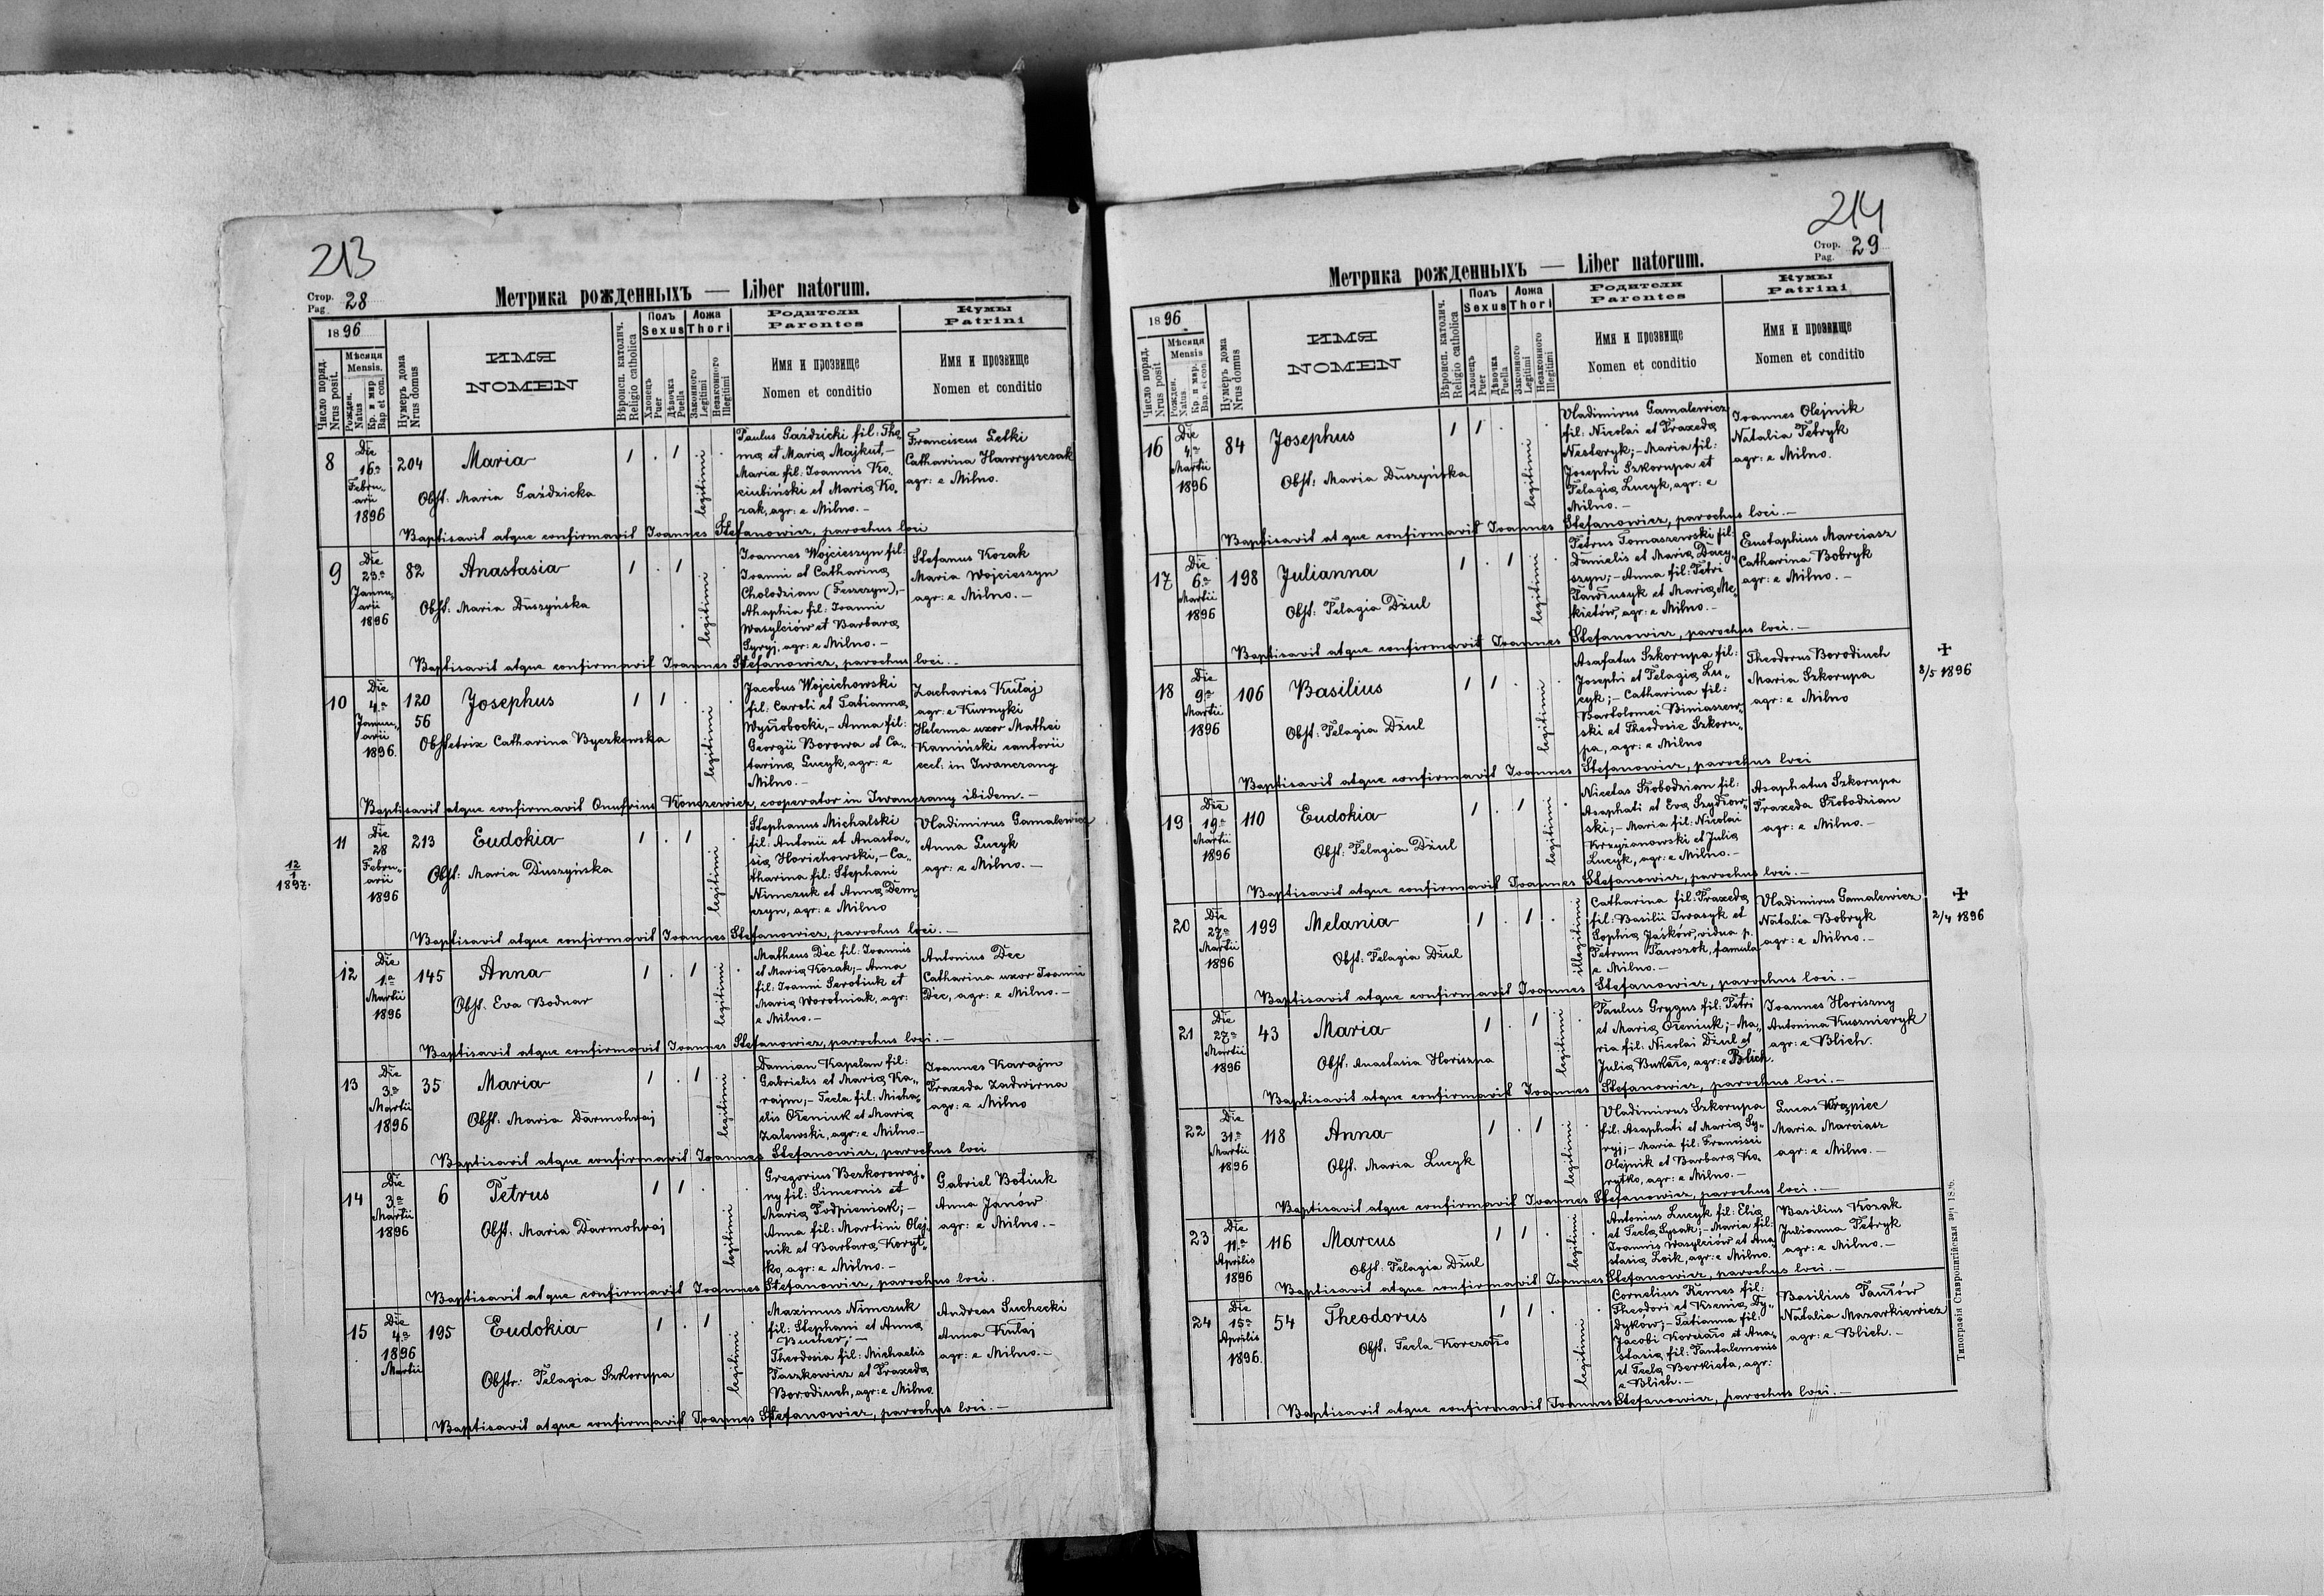 213
Стор.
Pag. 28
Метрика рожденныхъ — Liber natorum.
1896
Число поряд.
Nrus posit.
Мѣсяця
Mensis.
Рожден.
Natus
Кр. и мир.
Bap et con.
Нумеръ дома
Nrus domus
ИМЯ
NOMEN
Вѣроисп. католич.
Religio catholica
Полъ
Sexus
Хлопецъ
Puer
Дѣвочка
Puella
Ложа
Thori
Законного
Legitimi
Незаконного
Illegitimi
Родители
Parentes
Имя и прозвище
Nomen et conditio
Кумы
Patrini
Имя и прозвище
Nomen et conditio
8
Die
16ª
Febru„
arii
1896
204
Maria
Obst: Maria Gaździcka
1 . 1 .
legitimi
Paulus Gaździcki fil: Tho„
ma et Maria Majkut,–
Maria fil: Joannis Ko„
ciubiński et Maria Ko„
zak, agr: e Milno.–
Franciscus Letki
Catharina Hawryszczak
agr: e Milno.
Baptisavit atque confirmavit Joannes Stefanowicz, parochus loci
9
Die
23.ª
Januu„
arii
1896
82
Anastasia
Obst: Maria Duszyńska
1 . 1 .
legitimi
Joannes Wojcieszyn fil:
Joanni et Catharina
Cholodzian (Feszczyn),–
Ahaphia fil: Joanni
Wasylciów et Barbara
Syryj, agr: e Milno.–
Stefanus Kozak
Maria Wojcieszyn
agr: e Milno.–
Baptisavit atque confirmavit Joannes Stefanowicz, parochus loci.–
10
Die
4.ª
Januu„
arii
1896.
120
56
Josephus
Obstetrix Catharina Byczkowska
1 1 . .
legitimi
Jacobus Wojcichowski
fil: Caroli et Tatianna
Wysłobocki,– Anna fil:
Georgii Borowa et Ca„
tarina Lucyk, agr: e
Milno.–
Zacharias Kułaj
agr: e Kurnyki
Helenna uxor Mathei
Kamiński cantorii
eccl: in Iwanczany
Baptisavit atque confirmavit Onufrius Konczewicz, cooperator in Iwanczany ibidem.–
12
1
1897.
11
Die
28
Febru„
arii
1896
213
Eudokia
Obst: Maria Duszyńska
1 . 1 .
legitimi
Stephanus Michalski
fil: Antonii et Anasta„
sia Horichowski,– Ca„
tharina fil: Stephani
Nimczuk et Anna Dem„
czyn, agr: e Milno
Vladimirus Gamalewicz
Anna Lucyk
agr: e Milno.–
Baptisavit atque confirmavit Joannes Stefanowicz, parochus loci.–
12
Die
1.ª
Martii
1896
145
Anna
Obst. Eva Bodnar
1 . 1 .
legitimi
Matheus Dec fil: Joannis
et Maria Kozak;– Anna
fil: Joanni Serotiuk et
Maria Worotniak, agr:
e Milno.–
Antonius Dec
Catharina uxor Joanni
Dec, agr: e Milno.–
Baptisavit atque confirmavit Joannes Stefanowicz, parochus loci.–
13
Die
3.ª
Martii
1896
35
Maria
Obst: Maria Darmohraj
1 . 1 .
legitimi
Damian Kapelan fil:
Gabrielis et Maria Ka„
rajm;– Tecla fil: Micha„
elis Ołeniuk et Maria
Zalewski, agr: e Milno.–
Joannes Karajm
Praxeda Zadwirna
agr: e Milno
Baptisavit atque confirmavit Joannes Stefanowicz, parochus loci
14
Die
3.ª
Martii
1896
6
Petrus
Obst: Maria Darmohraj
1 1 . .
legitimi
Gregorius Bezkorowaj„
ny fil: Simeonis et
Maria Podpieniak;–
Anna fil: Martini Olej„
nik et Barbara Koryt„
ko, agr: e Milno.–
Gabriel Botiuk
Anna Janów
agr: e Milno.–
Baptisavit atque confirmavit Joannes Stefanowicz, parochus loci.
15
Die
4.ª
1896
Martii
195
Eudokia
Obstr: Pelagia Szkorupa
1 . 1 .
legitimi
Maximus Nimczuk
fil: Stephani et Anna
Bucher;–
Theodosia fil: Michaelis
Paszkowicz et Praxeda
Borodiuch, agr: e Milno
Andreas Suchecki
Anna Kułaj
agr: e Milno.–
Baptisavit atque confirmavit Joannes Stefanowicz, parochus loci.–
214
Стор.
Pag. 29
Метрика рожденныхъ — Liber natorum.
1896.
Число поряд.
Nrus posit
Мѣсяця
Mensis
Рожден.
Natus.
Кр. и мир.
Bap. et con.
Нумеръ дома
Nrus domus
ИМЯ
NOMEN
Вѣроисп. католич.
Religio catholica
Полъ
Sexus
Хлопецъ
Puer
Дѣвочка
Puella
Ложа
Thori
Законного
Legitimi
Незаконного
Illegitimi
Родители
Parentes
Имя и прозвище
Nomen et conditio
Кумы
Patrini
Имя и прозвище
Nomen et conditio
16
Die
4.ª
Martii
1896
84
Josephus
Obst: Maria Duszyńska
1 1 . .
legitimi
Vladimirus Gamalewicz
fil: Nicolai et Praxeda
Nesteryk;– Maria fil:
Josephi Szkorupa et
Pelagia Lucyk, agr: e
Milno.–
Joannes Olejnik
Natalia Petryk
agr: e Milno.
Baptisavit atque confirmavit Joannes Stefanowicz, parochus loci.–
17
Die
6.ª
Martii
1896
198
Julianna
Obst: Pelagia Dżul
1 . 1 .
legitimi
Petrus Tomaszewski fil:
Danielis et Maria Dacy„
szyn;– Anna fil: Petri
Pawlusyk et Maria Me„
kietów, agr: e Milno.–
Eustaphius Marciasz
Catharina Bobryk
agr: e Milno.–
Baptisavit atque confirmavit Joannes Stefanowicz, parochus loci.–
18
Die
9.ª
Martii
1896
106
Basilius
Obst: Pelagia Dżul
1 1 . .
legitimi
Asafatus Szkorupa fil:
Josephi et Pelagia Lu„
cyk;– Catharina fil:
Bartolomei Biniaszew„
ski et Theodosie Szkoru„
pa, agr: e Milno
Theodorus Borodiuch
Maria Szkorupa
agr: e Milno
✠
8/5 1896
Baptisavit atque confirmavit Joannes Stefanowicz, parochus loci
19
Die
19.ª
Martii
1896
110
Eudokia
Obst: Pelagia Dżul
1 . 1 .
legitimi
Nicetas Słobodzian fil:
Asaphati et Eva Szydłow„
ski;– Maria fil: Nicolai
Krzyżanowski et Julia
Lucyk, agr: e Milno.–
Asaphatus Szkorupa
Praxeda Słobodzian
agr: e Milno.–
Baptisavit atque confirmavit Joannes Stefanowicz, parochus loci.–
20
Die
27.ª
Martii
1896
199
Melania
Obst: Pelagia Dżul
1 . 1 .
illegitimi
Catharina fil: Praxeda
fil: Basilii Iwasyk et
Sophia Jaśków, vidua p.
Petrum Pawoszok, famula
e Milno.–
Vladimirus Gamalewicz
Natalia Bobryk
agr: e Milno.–
✠
2/4 1896
Baptisavit atque confirmavit Joannes Stefanowicz, parochus loci.–
21
Die
27.ª
Martii
1896
43
Maria
Obst: Anastasia Horiszna
1 . 1 .
legitimi
Paulus Grygus fil: Petri
et Maria Ołeniuk;– Ma„
ria fil: Nicolai Dżul et
Julia Bukało, agr: e Blich.
Joannes Horiszny
Antonina Kusznieryk
agr: e Blich.
Baptisavit atque confirmavit Joannes Stefanowicz, parochus loci.–
22
Die
31.ª
Martii
1896
118
Anna
Obst. Maria Lucyk
1 . 1 .
legitimi
Vladimirus Szkorupa
fil: Asaphati et Maria Sy„
ryj;– Maria fil: Francisci
Olejnik et Barbara Ko„
rytko, agr: e Milno.–
Lucas Krąpiec
Maria Marciasz
agr: e Milno.–
Baptisavit atque confirmavit Joannes Stefanowicz, parochus loci.–
23
Die
11.ª
Aprilis
1896
116
Marcus
Obst: Pelagia Dżul
1 1 . .
legitimi
Antonius Lucyk fil: Elia
et Tecla Sysak;– Maria fil:
Joannis Wasylciów et Ana„
stasia Loik, agr: e Milno.
Basilius Kozak
Julianna Petryk
agr: e Milno.–
Baptisavit atque confirmavit Joannes Stefanowicz, parochus loci.–
24
Die
15.ª
Aprilis
1896.
54
Theodorus
Obst: Tecla Korczało
1 1 . .
legitimi
Cornelius Remes fil:
Theodori et Ksenia Dy„
dyków;– Tatianna fil:
Jacobi Korczało et Ana„
stasia fil: Pantalemonis
et Tecla Berkieta, agr:
e Blich.–
Basilius Pawłów
Natalia Mazarkiewicz
agr: e Blich.–
Baptisavit atque confirmavit Joannes Stefanowicz, parochus loci.–
Типографія Ставропигійская